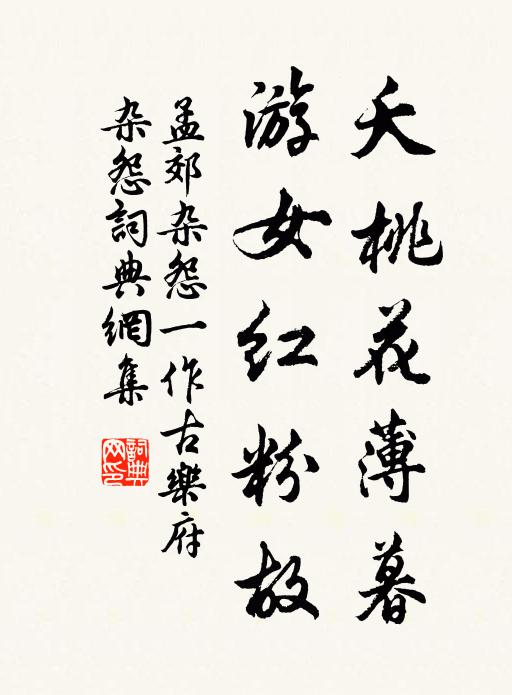 夭桃花薄暮
游女红粉故
孟郊杂怨一作古樂府
杂怨詞典網集
詞典網印